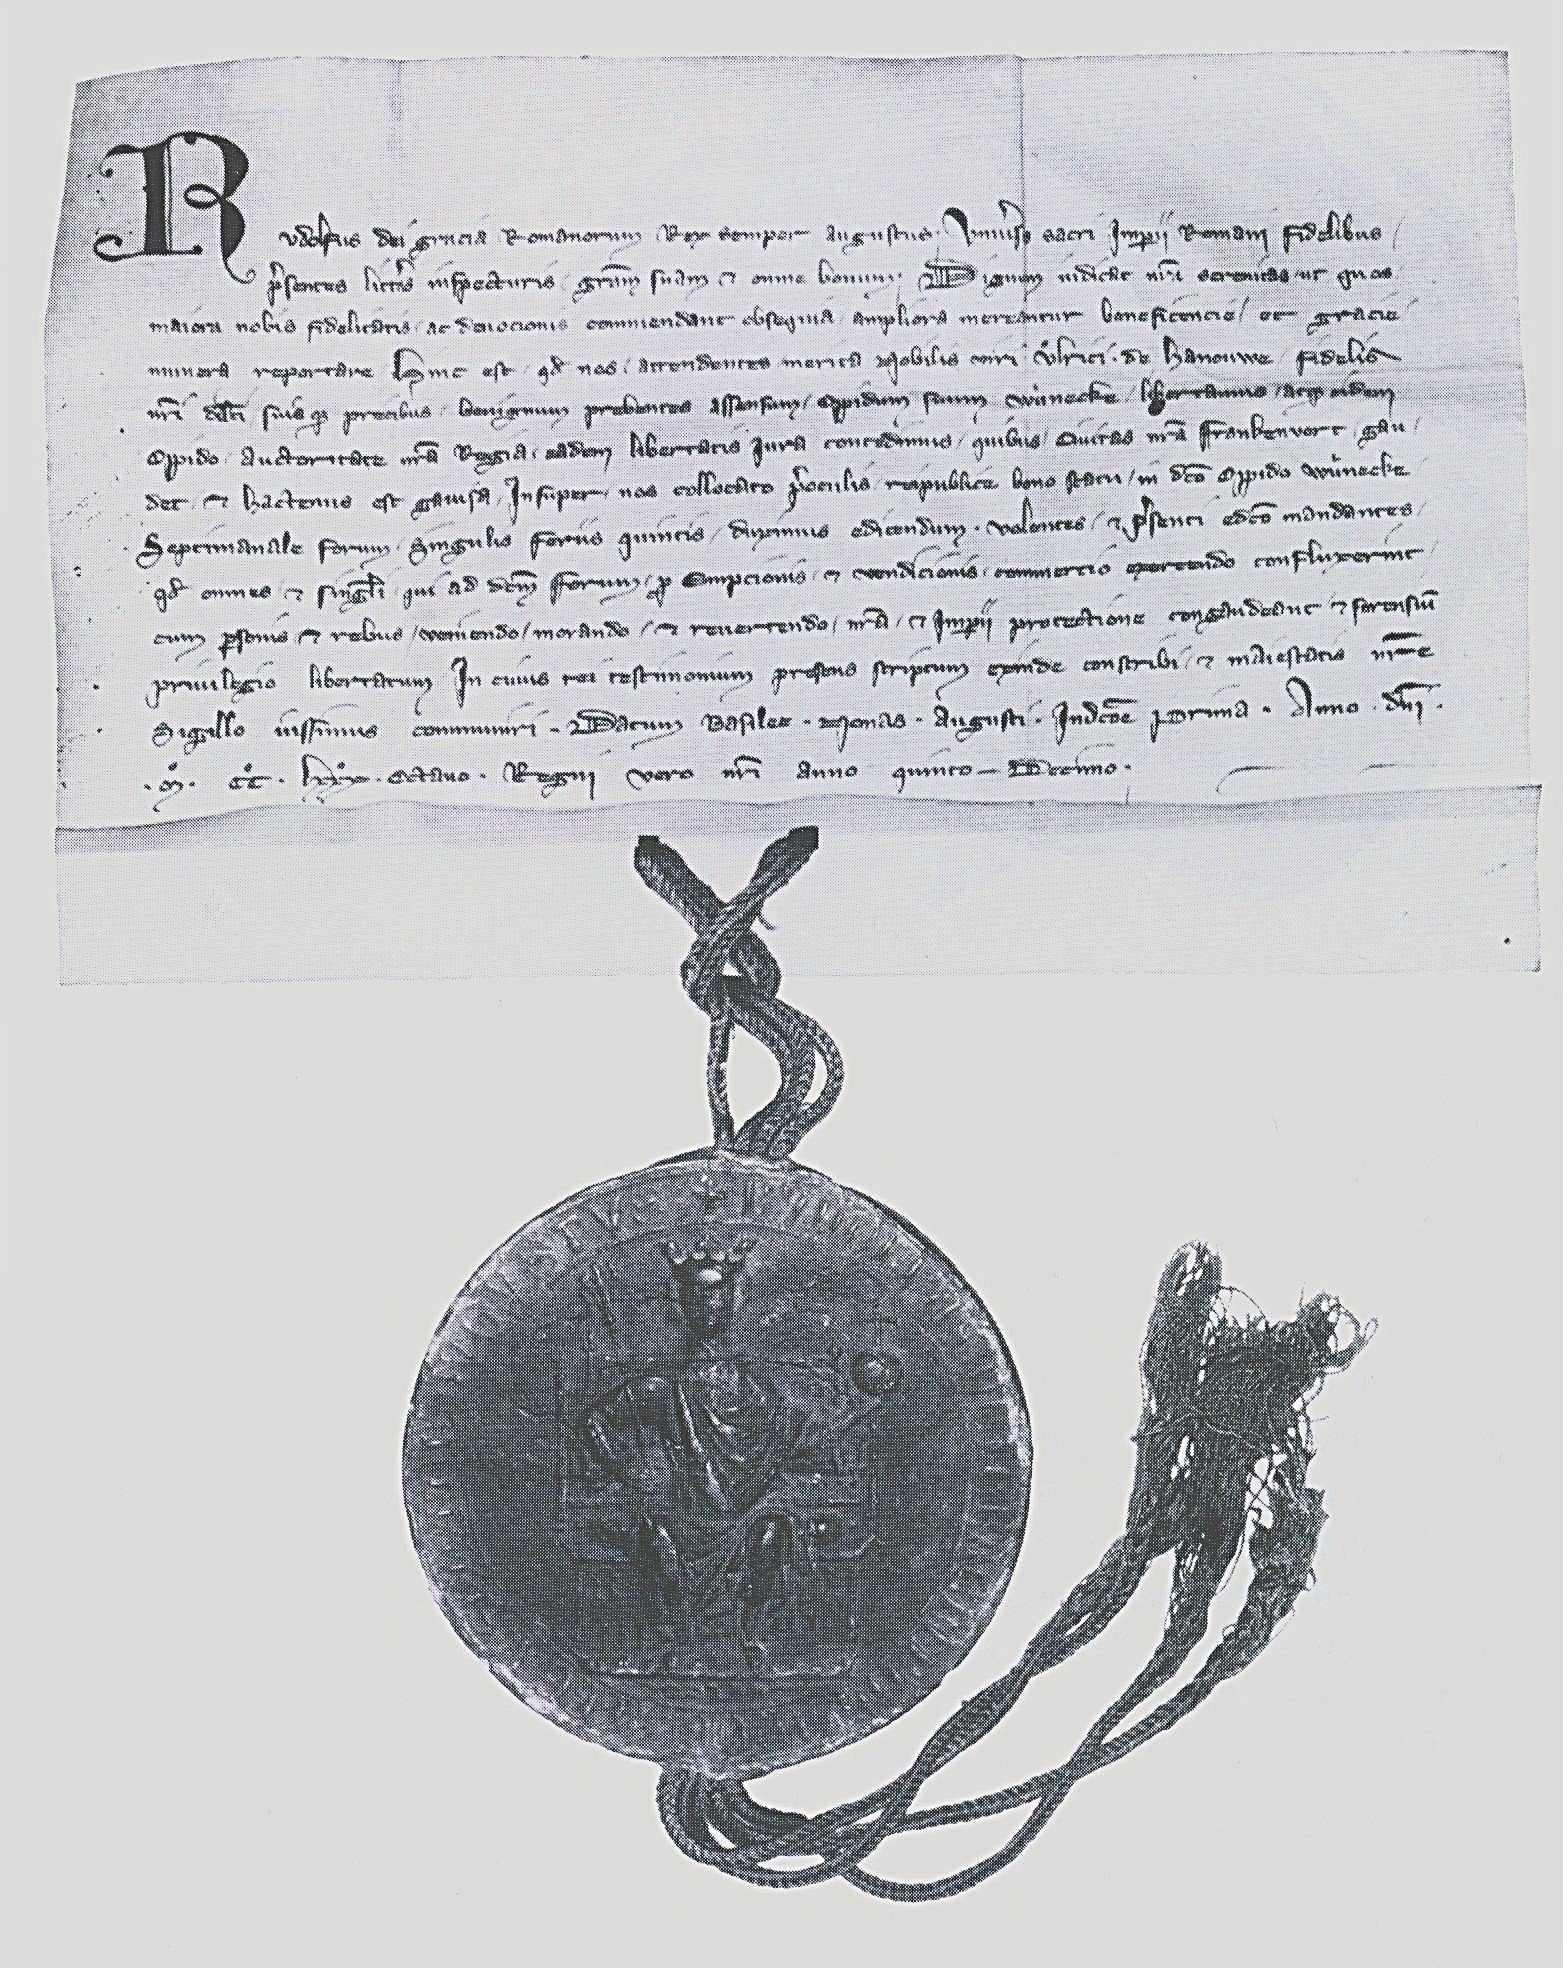 Rudolfus dei gracia Romanorum Rex semper augustus. Vniũsis sacri Imꝑii Romani fidelibus
p̃sentes litt̃as inspecturis grãm suam ⁊ omne bonum. Dignum iudicat nr̃a serenitas ut quos
maiora nobis fidelitatis ac deuocionis commendant obsequia ampliora mereantur beneficencie et gracie
munera reportare. Hinc est qđ nos attendentes merita Nobilis viri Vlrici de Hanouwe fidelis
nr̃i dilc̃i suisq precibus benignum prebentes assensum Oppidum suum Wũnecke libertamus atq eidem
Oppido auctoritate nr̃a Regia eadem libertatis Jura concedimus quibus Ciuitas nr̃a Frankenvort gau
det ⁊ hactenus est gauisa. Insuper nos collocato p̃ oculis reipublice bono statu in dc̃o Oppido Wũnecke
Septimanale forum singulis feriis quintis duximus edicendum. volentes ⁊ p̃senti edc̃o mandantes
qđ omnes ⁊ singl̃i qui ad dc̃m forum ꝓ Empcionis ⁊ vendicionis commercio exercendo confluxerint
cum ꝑsonis ⁊ rebus veniendo morando ⁊ reuertendo nr̃a ⁊ Imꝑii protectione congaudeant ⁊ forensiũ
priuilegio libertatum. In cuius rei testimonium presens scriptum exinde conscribi ⁊ maiestatis nr̃e
Sigillo iussimus communiri. Datum Basilee. Nonas. Augusti. Indc̃oe Prima. Anno. dñi.
.M. CC. lxxx. Octauo. Regni vero nr̃i anno quinto Decimo.